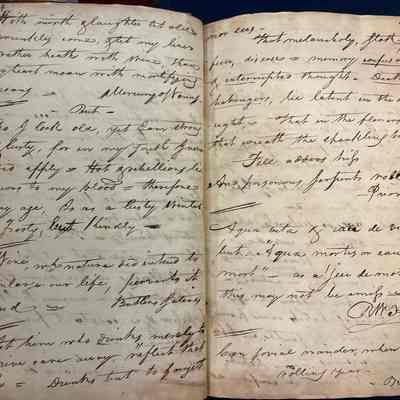 With mirth & laughter let old
wrinkles come, & let my liver
rather heat with wine, than
my heart
cool with mortifying
groans = Merchant of Venice
— But —
Tho I look old, yet I am strong
& lusty, for in my youth I never
did apply = Hot & rebellious li
quors to my blood = therefore
my age, is as a lusty winter
frosty, but kindly —
Wine who nature did intend to
enlarge our life, perverts its
end. — Butler's Satires
Let him who drinks merely to
drive care away, reflect that
he = Drinks but to forget
nor ease —
That melancholy, sloth
fires, diseases = memory confused
& interrupted thought = Death
harbingers, lie latent in the d
aught = that in the flowers
that wreath the sparkling b
Fell adders hiss
And poisonous serpents roll
Prior
Aqua vita & eau de vie
but, "Aqua mortis or eau
mort" — as a Jeu de mot
this may not be amiss =
Can Jovial minder, when
rolling year —